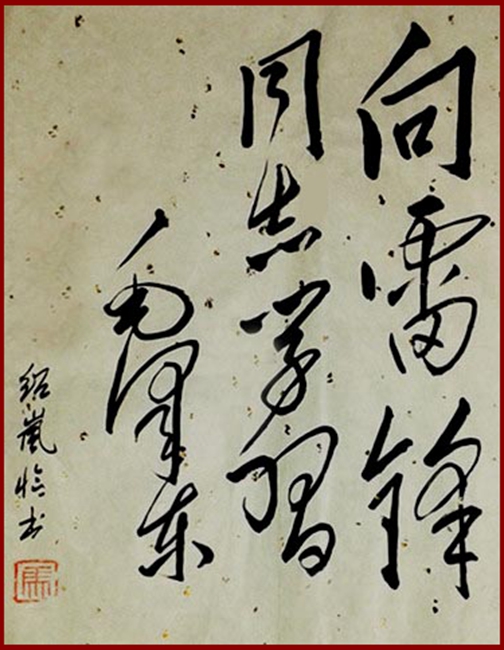 向雷锋
同志学习
毛泽东
绍岚临书